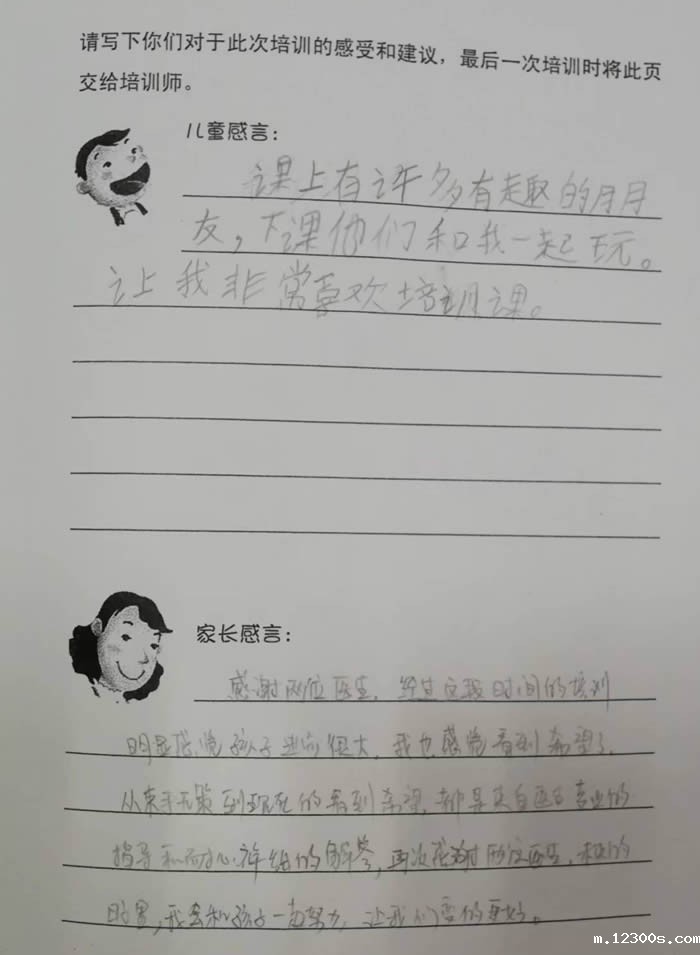 请写下你们对于此次培训的感受和建议，最后一次培训时将此页
交给培训师。
儿童感言：
课上有许多有趣的朋
友，下课他们和我一起玩。
让我非常喜欢培训课。
家长感言：
感谢两位医生，经过这段时间的培训
明显感觉孩子进步很大，我也感觉看到希望了，
从束手无策到现在的看到希望，都是来自医生专业的
指导和耐心详细的解答，再次感谢两位医生，
我会和孩子一起努力，让我们变的更好。
m.12300s.com